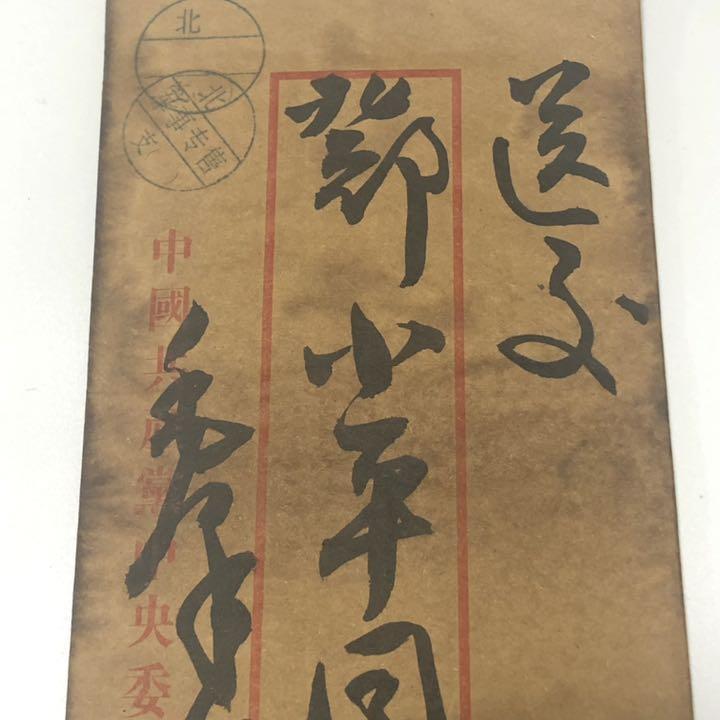 送交
鄧小平同
毛
中國共產黨中央委
北
北
事专售
支